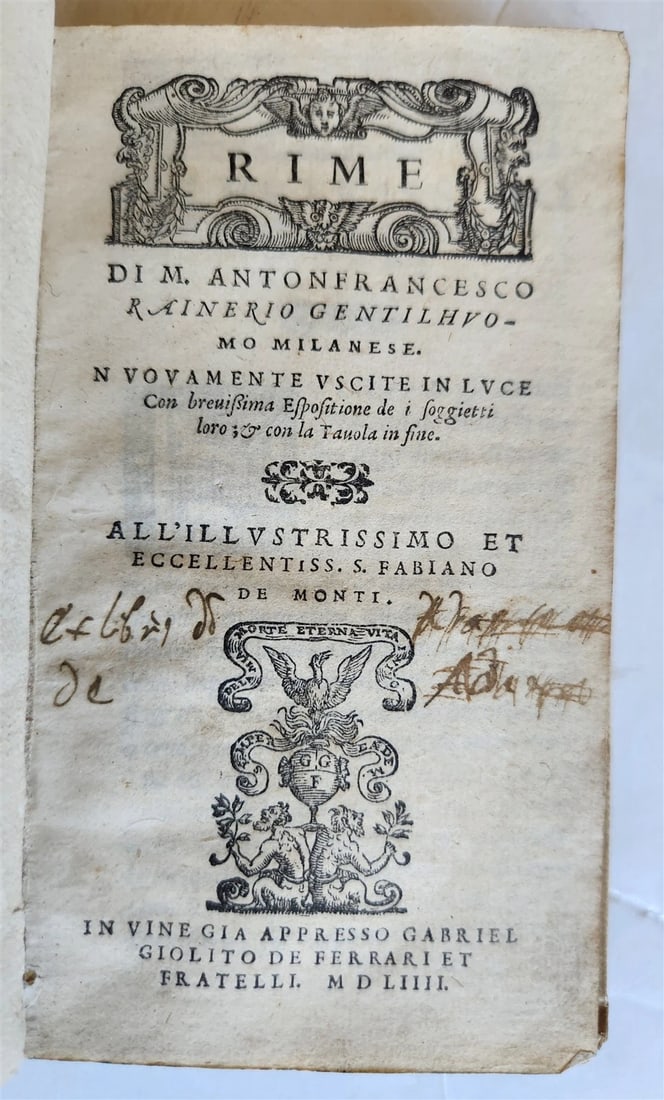 RIME
DI M. ANTONFRANCESCO
RAINERIO GENTILHVO-
MO MILANESE.
NVOVAMENTE VSCITE IN LVCE
Con breuißima Eſpoſitione de i ſoggietti
loro ; & con la Tauola in fine.
ALL'ILLVSTRISSIMO ET
ECCELLENTISS. S. FABIANO
DE MONTI.
Ex libris
de
DE LA MIA MORTE ETERNA VITA I VIVO
SEMPER EADEM
G G
F
IN VINEGIA APPRESSO GABRIEL
GIOLITO DE FERRARI ET
FRATELLI. M D LIIII.